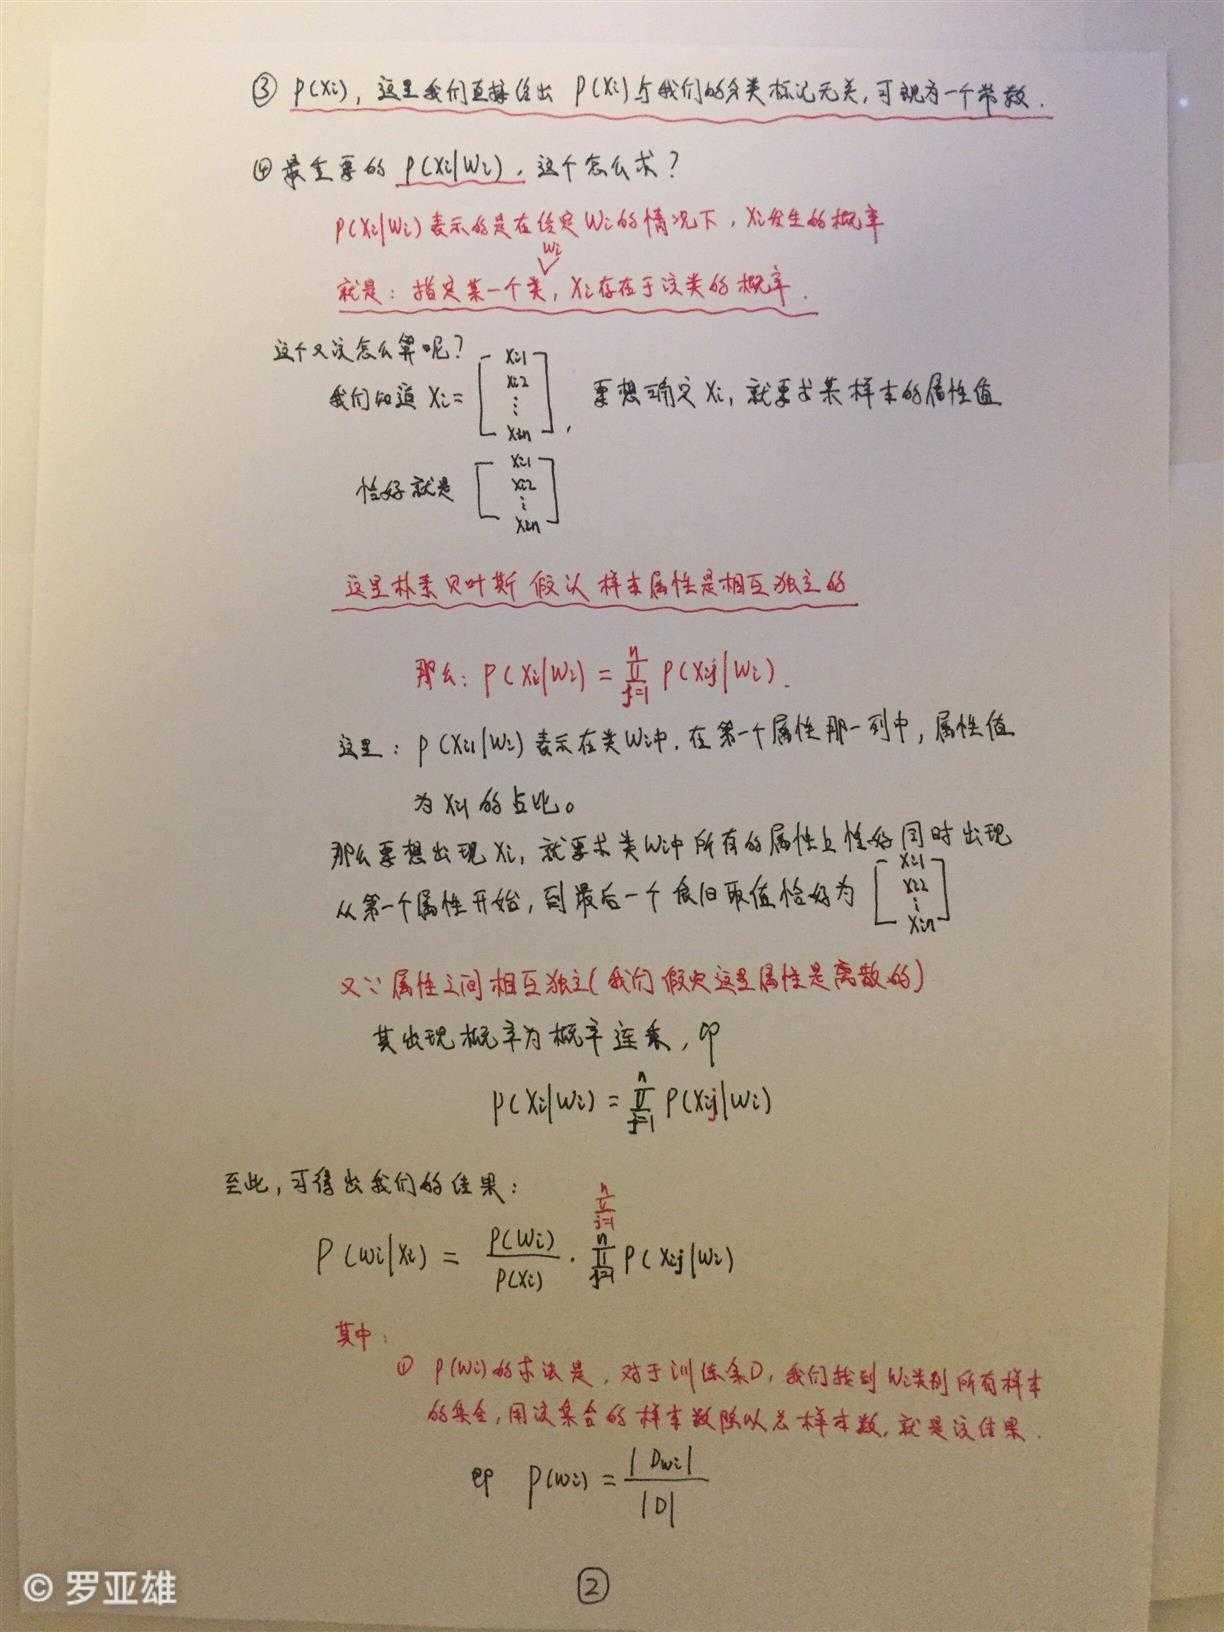 ③ P(Xi), 这里我们直接给出 P(Xi)与我们的分类标记无关, 可视为一个常数.
④ 最重要的 P(Xi|Wi), 这个怎么求?
P(Xi|Wi)表示的是在给定Wi的情况下, Xi发生的概率
Wi
就是: 指定某一个类, Xi存在于该类的概率.
这个又该怎么算呢?
我们知道 Xi= [ Xi1 Xi2 ⋮ Xin ], 要想确定Xi, 就要求某样本的属性值
恰好就是 [ Xi1 Xi2 ⋮ Xin ]
这里朴素贝叶斯假认样本属性是相互独立的
那么: P(Xi|Wi) = ∏ n j=1 P(Xij|Wi).
这里: P(Xi1|Wi)表示在类Wi中, 在第一个属性那一列中, 属性值
为Xi1的占比。
那么要想出现Xi, 就要求类Wi中所有的属性上恰好同时出现
从第一个属性开始, 到最后一个 取值恰好为 [ Xi1 Xi2 ⋮ Xin ]
又∵属性之间相互独立(我们假定这里属性是离散的)
其出现概率为概率连乘, 即
P(Xi|Wi) = ∏ n j=1 P(Xij|Wi)
至此, 可得出我们的结果:
n ∏ j=1
P(Wi|Xi) = P(Wi)/P(Xi) · ∏ n j=1 P(Xij|Wi)
其中:
① P(Wi)的求法是, 对于训练集D, 我们找到Wi类别所有样本
的集合, 用该集合的样本数除以总样本数, 就是该结果.
即 P(Wi) = |Dwi|/|D|
②
© 罗亚雄